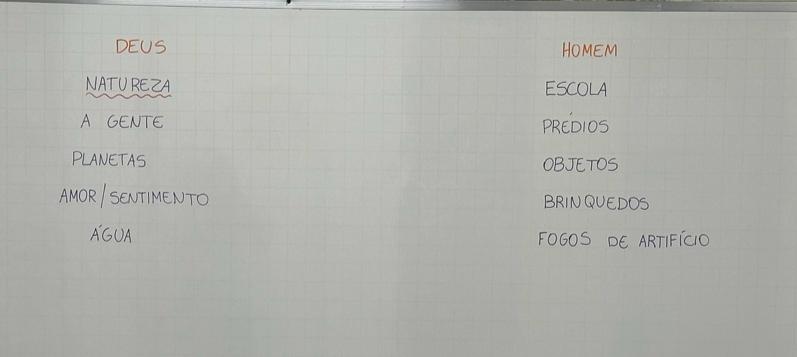 DEUS
NATUREZA
A GENTE
PLANETAS
AMOR/SENTIMENTO
ÁGUA
HOMEM
ESCOLA
PRÉDIOS
OBJETOS
BRINQUEDOS
FOGOS DE ARTIFÍCIO